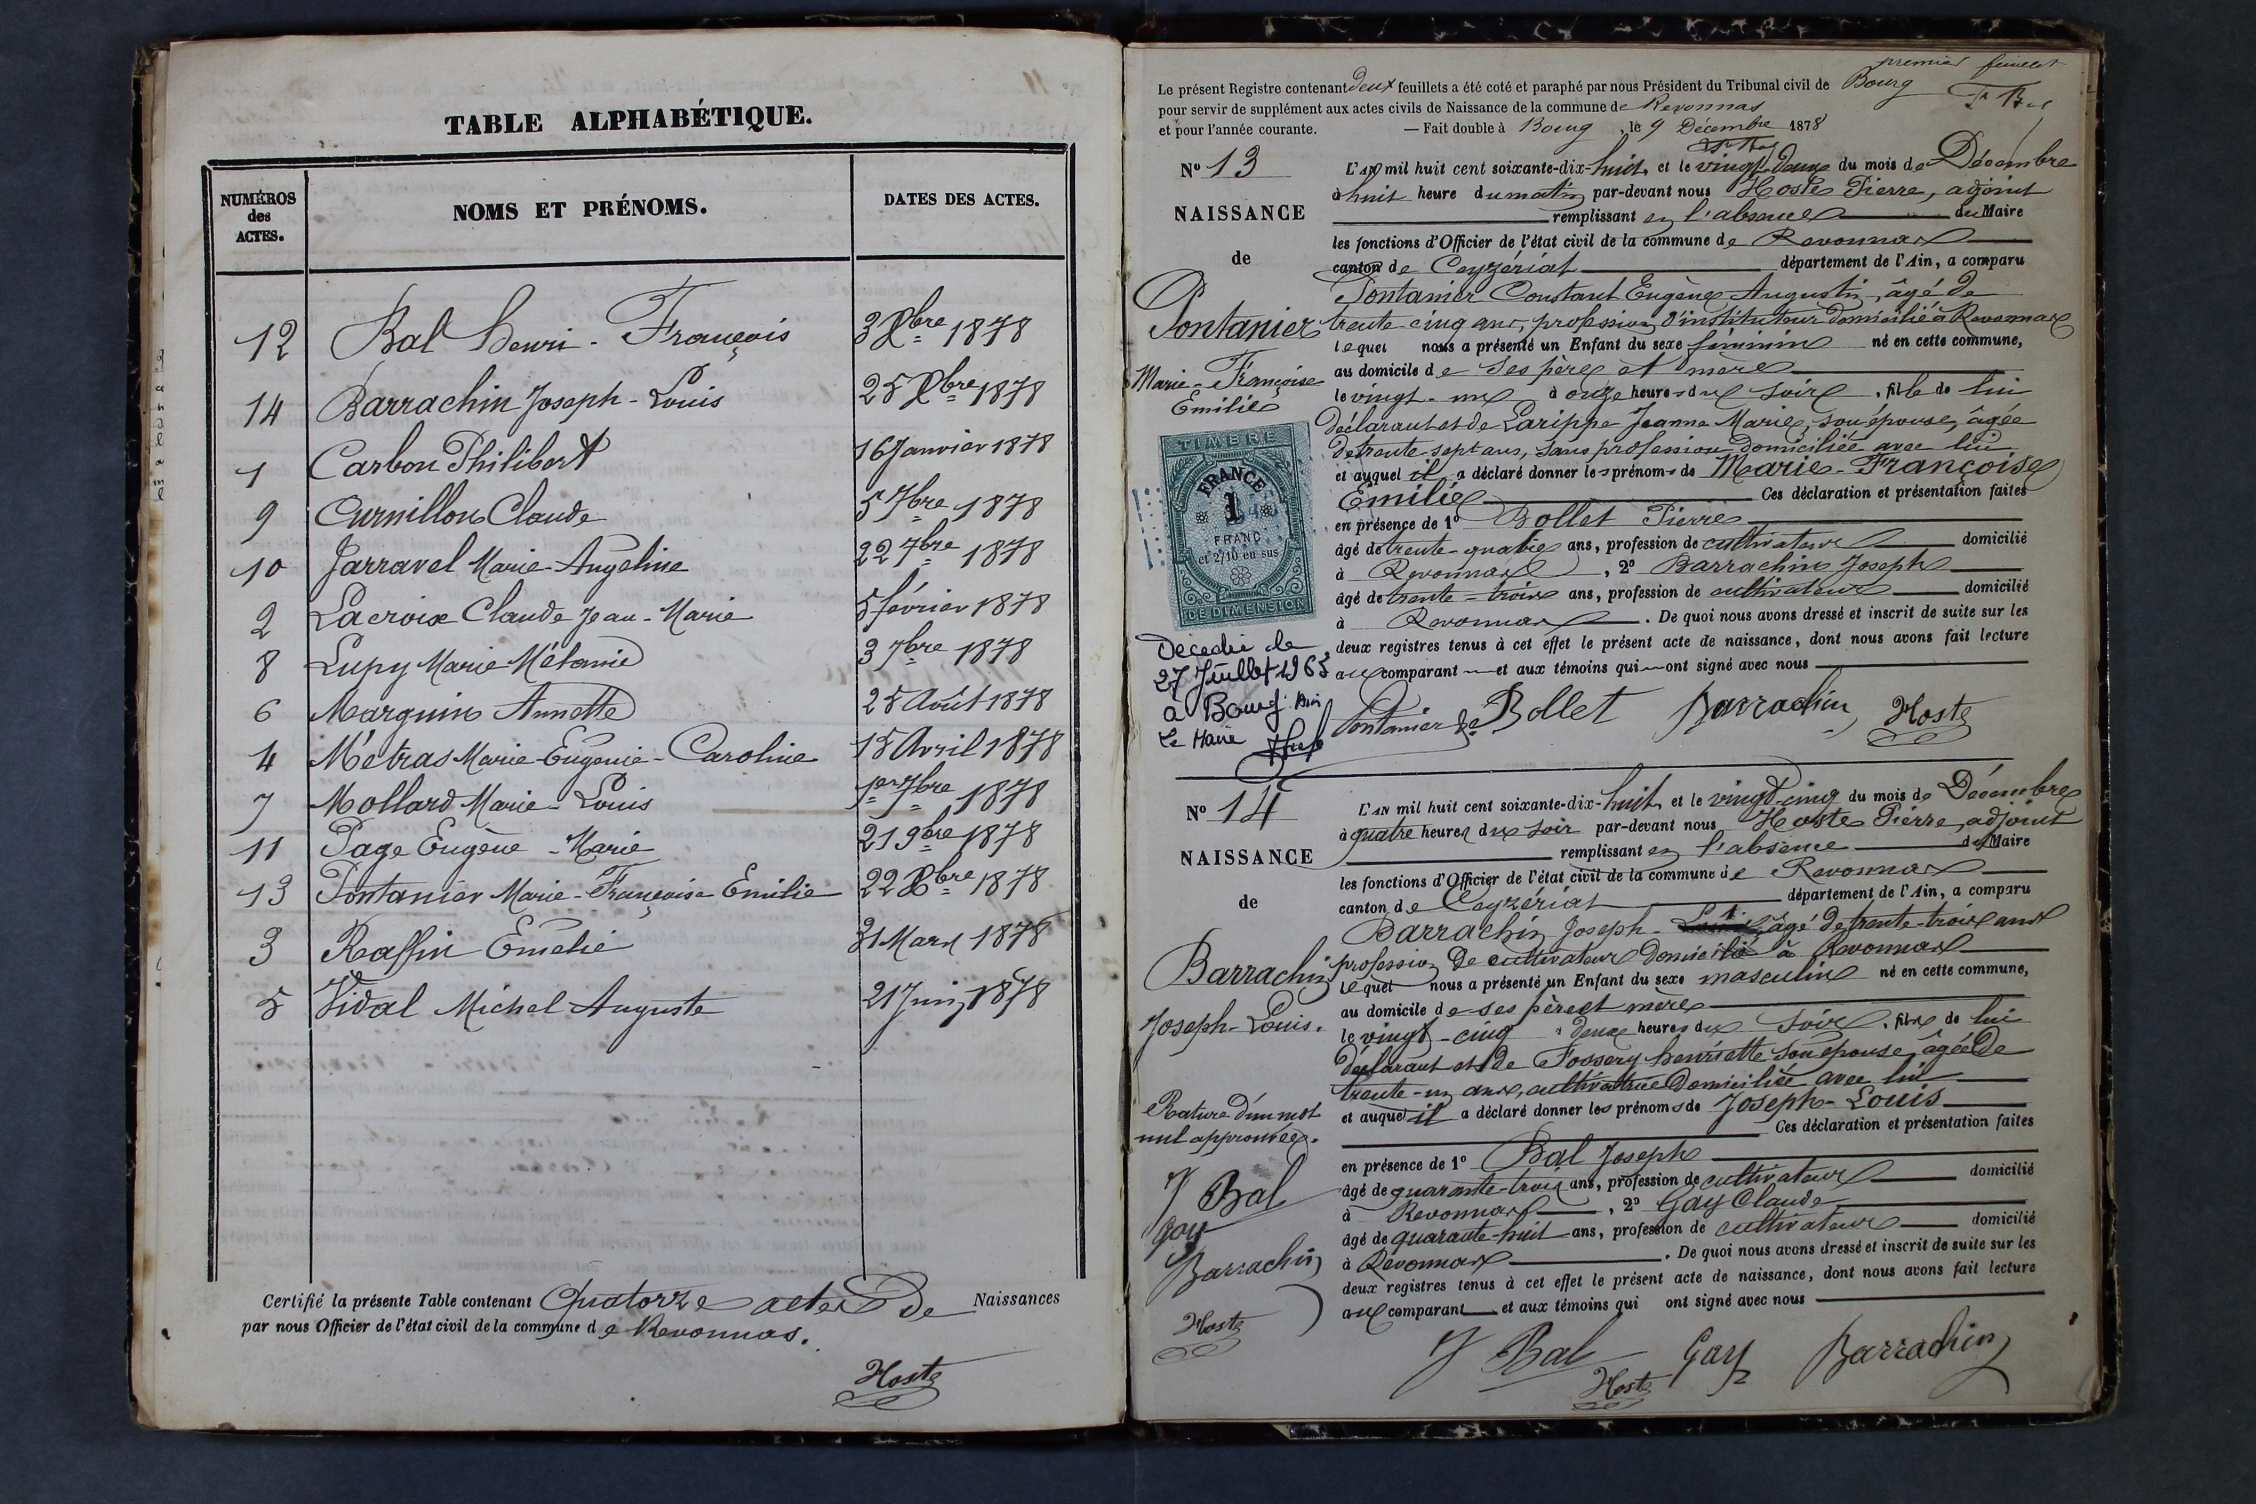 TABLE ALPHABÉTIQUE.
NUMÉROS des ACTES.
NOMS ET PRÉNOMS.
DATES DES ACTES.
12 Bal Henri - François 3 Xbre 1878
14 Barrachin Joseph - Louis 25 Xbre 1878
1 Carbon Philibert 16 Janvier 1878
9 Curnillon Claude 5 7bre 1878
10 Jarravel Marie Angeline 22 7bre 1878
2 Lacroix Claude Jean - Marie 5 février 1878
8 Lupy Marie Mélanie 3 7bre 1878
6 Marguin Annette 25 Août 1878
4 Métras Marie Eugenie - Caroline 15 Avril 1878
7 Mollard Marie - Louis 1er 7bre 1878
11 Page Eugène - Marie 21 9bre 1878
13 Pontanier Marie - Françoise Emilie 22 Xbre 1878
3 Raffin Emélie 31 Mars 1878
5 Vidal Michel Auguste 21 Juin 1878
Certifié la présente Table contenant Quatorze actes de Naissances
par nous Officier de l'état civil de la commune de Revonnas.
Hoste
premier feuillet
Le présent Registre contenant deux feuillets a été coté et paraphé par nous Président du Tribunal civil de Bourg
pour servir de supplément aux actes civils de Naissance de la commune de Revonnas
et pour l'année courante. — Fait double à Bourg, le 9 Décembre 1878
No 13
NAISSANCE
de
Pontanier
Marie - Françoise
Emilie
L'AN mil huit cent soixante-dix-huit et le vingt-deux du mois de Décembre
à huit heure du matin par-devant nous Hoste Pierre, adjoint
remplissant en l'absence du Maire
les fonctions d'Officier de l'état civil de la commune de Revonnas
canton de Ceyzériat département de l'Ain, a comparu
Pontanier Constant Eugène Augustin, âgé de
trente cinq ans, profession d'instituteur domicilié à Revonnas
lequel nous a présenté un Enfant du sexe féminin né en cette commune,
au domicile de ses père et mère
le vingt - un à onze heures du soir, fille de lui
déclarant et de Larippe Jeanne Marie, son épouse, âgée
de trente sept ans, sans profession domiciliée avec lui
et auquel il a déclaré donner les prénoms de Marie - Françoise
Emilie Ces déclaration et présentation faites
en présence de 1o Bollet Pierre
âgé de trente - quatre ans, profession de cultivateur domicilié
à Revonnas, 2o Barrachin Joseph
âgé de trente - trois ans, profession de cultivateur domicilié
à Revonnas. De quoi nous avons dressé et inscrit de suite sur les
deux registres tenus à cet effet le présent acte de naissance, dont nous avons fait lecture
aux comparant et aux témoins qui ont signé avec nous
TIMBRE
FRANCE
1
FRANC
et 2/10 en sus
DE DIMENSION
Décédée le
27 Juillet 1965
à Bourg Ain
Le Maire
Pontanier Bollet Barrachin Hoste
No 14
NAISSANCE
de
Barrachin
Joseph - Louis.
L'AN mil huit cent soixante-dix-huit et le vingt-cinq du mois de Décembre
à quatre heures du soir par-devant nous Hoste Pierre, adjoint
remplissant en l'absence du Maire
les fonctions d'Officier de l'état civil de la commune de Revonnas
canton de Ceyzériat département de l'Ain, a comparu
Barrachin Joseph - âgé de trente-trois ans
profession de cultivateur domicilié à Revonnas
lequel nous a présenté un Enfant du sexe masculin né en cette commune,
au domicile de ses père et mère
le vingt - cinq à deux heures du soir, fils de lui
déclarant et de Fossery henriette son épouse, âgée de
trente - un ans, cultivatrice domiciliée avec lui
et auquel il a déclaré donner les prénoms de Joseph - Louis
Ces déclaration et présentation faites
en présence de 1o Bal Joseph
âgé de quarante - trois ans, profession de cultivateur domicilié
à Revonnas, 2o Gay Claude
âgé de quarante-huit ans, profession de cultivateur domicilié
à Revonnas. De quoi nous avons dressé et inscrit de suite sur les
deux registres tenus à cet effet le présent acte de naissance, dont nous avons fait lecture
aux comparant et aux témoins qui ont signé avec nous
Rature d'un mot
nul approuvée.
J Bal
Gay
Barrachin
Hoste
J Bal Gay Barrachin
Hoste